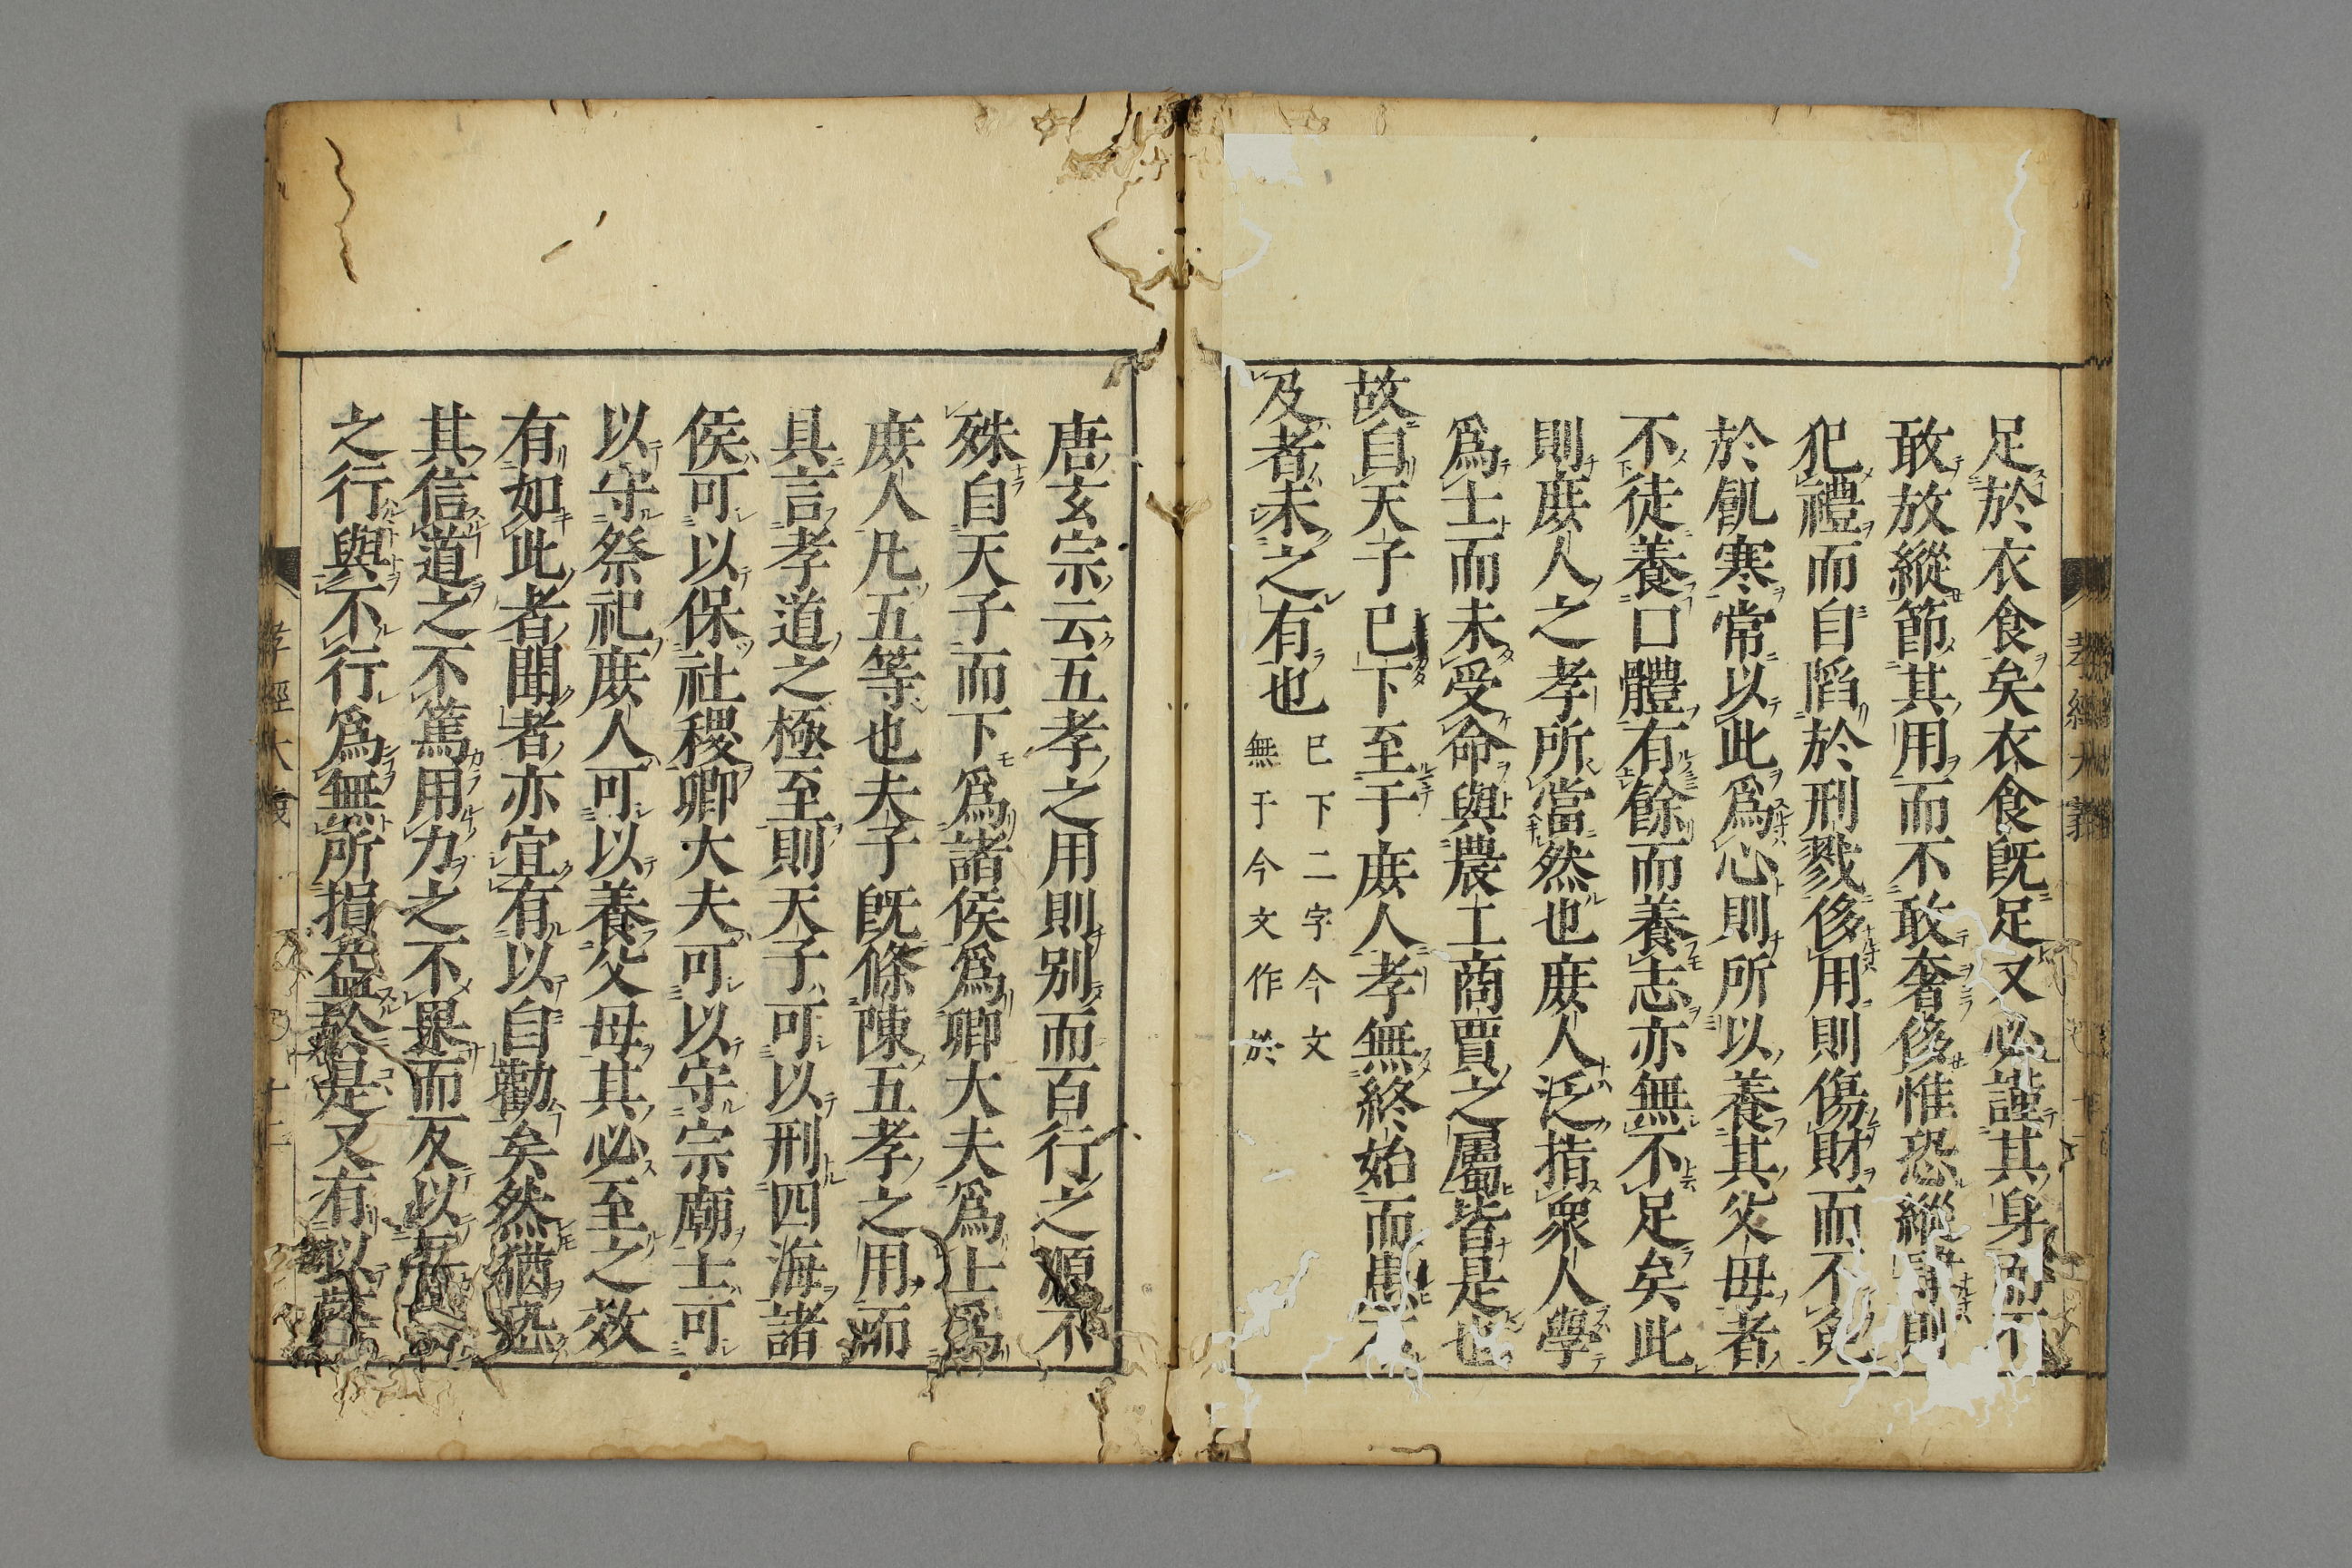 足於衣食矣衣食旣足又必謹其身而不
敢放縱節其用而不敢奢侈惟恐縱身則
犯禮而自䧟於刑戮侈用則傷財而不免
於飢寒常以此爲心則所以養其父母者
不徒養口體有餘而養志亦無不足矣此
則庻人之孝所當然也庻人泛指衆人學
爲士而未受命與農工商賈之屬皆是也
故自天子已下至于庻人孝無終始而患不
及者未之有也
巳下二字今文
無于今文作於
唐玄宗云五孝之用則别而百行之源不
殊自天子而下爲諸侯爲卿大夫爲士爲
庻人凡五等也夫子旣條陳五孝之用而
具言孝道之極至則天子可以刑四海諸
侯可以保社稷卿大夫可以守宗廟士可
以守祭祀庻人可以養父母其必至之效
有如此者聞者亦宜有以自勸矣然猶恐
其信道之不篤用力之不果而反以
之行與不行爲無所損益於是又有以
孝經大義